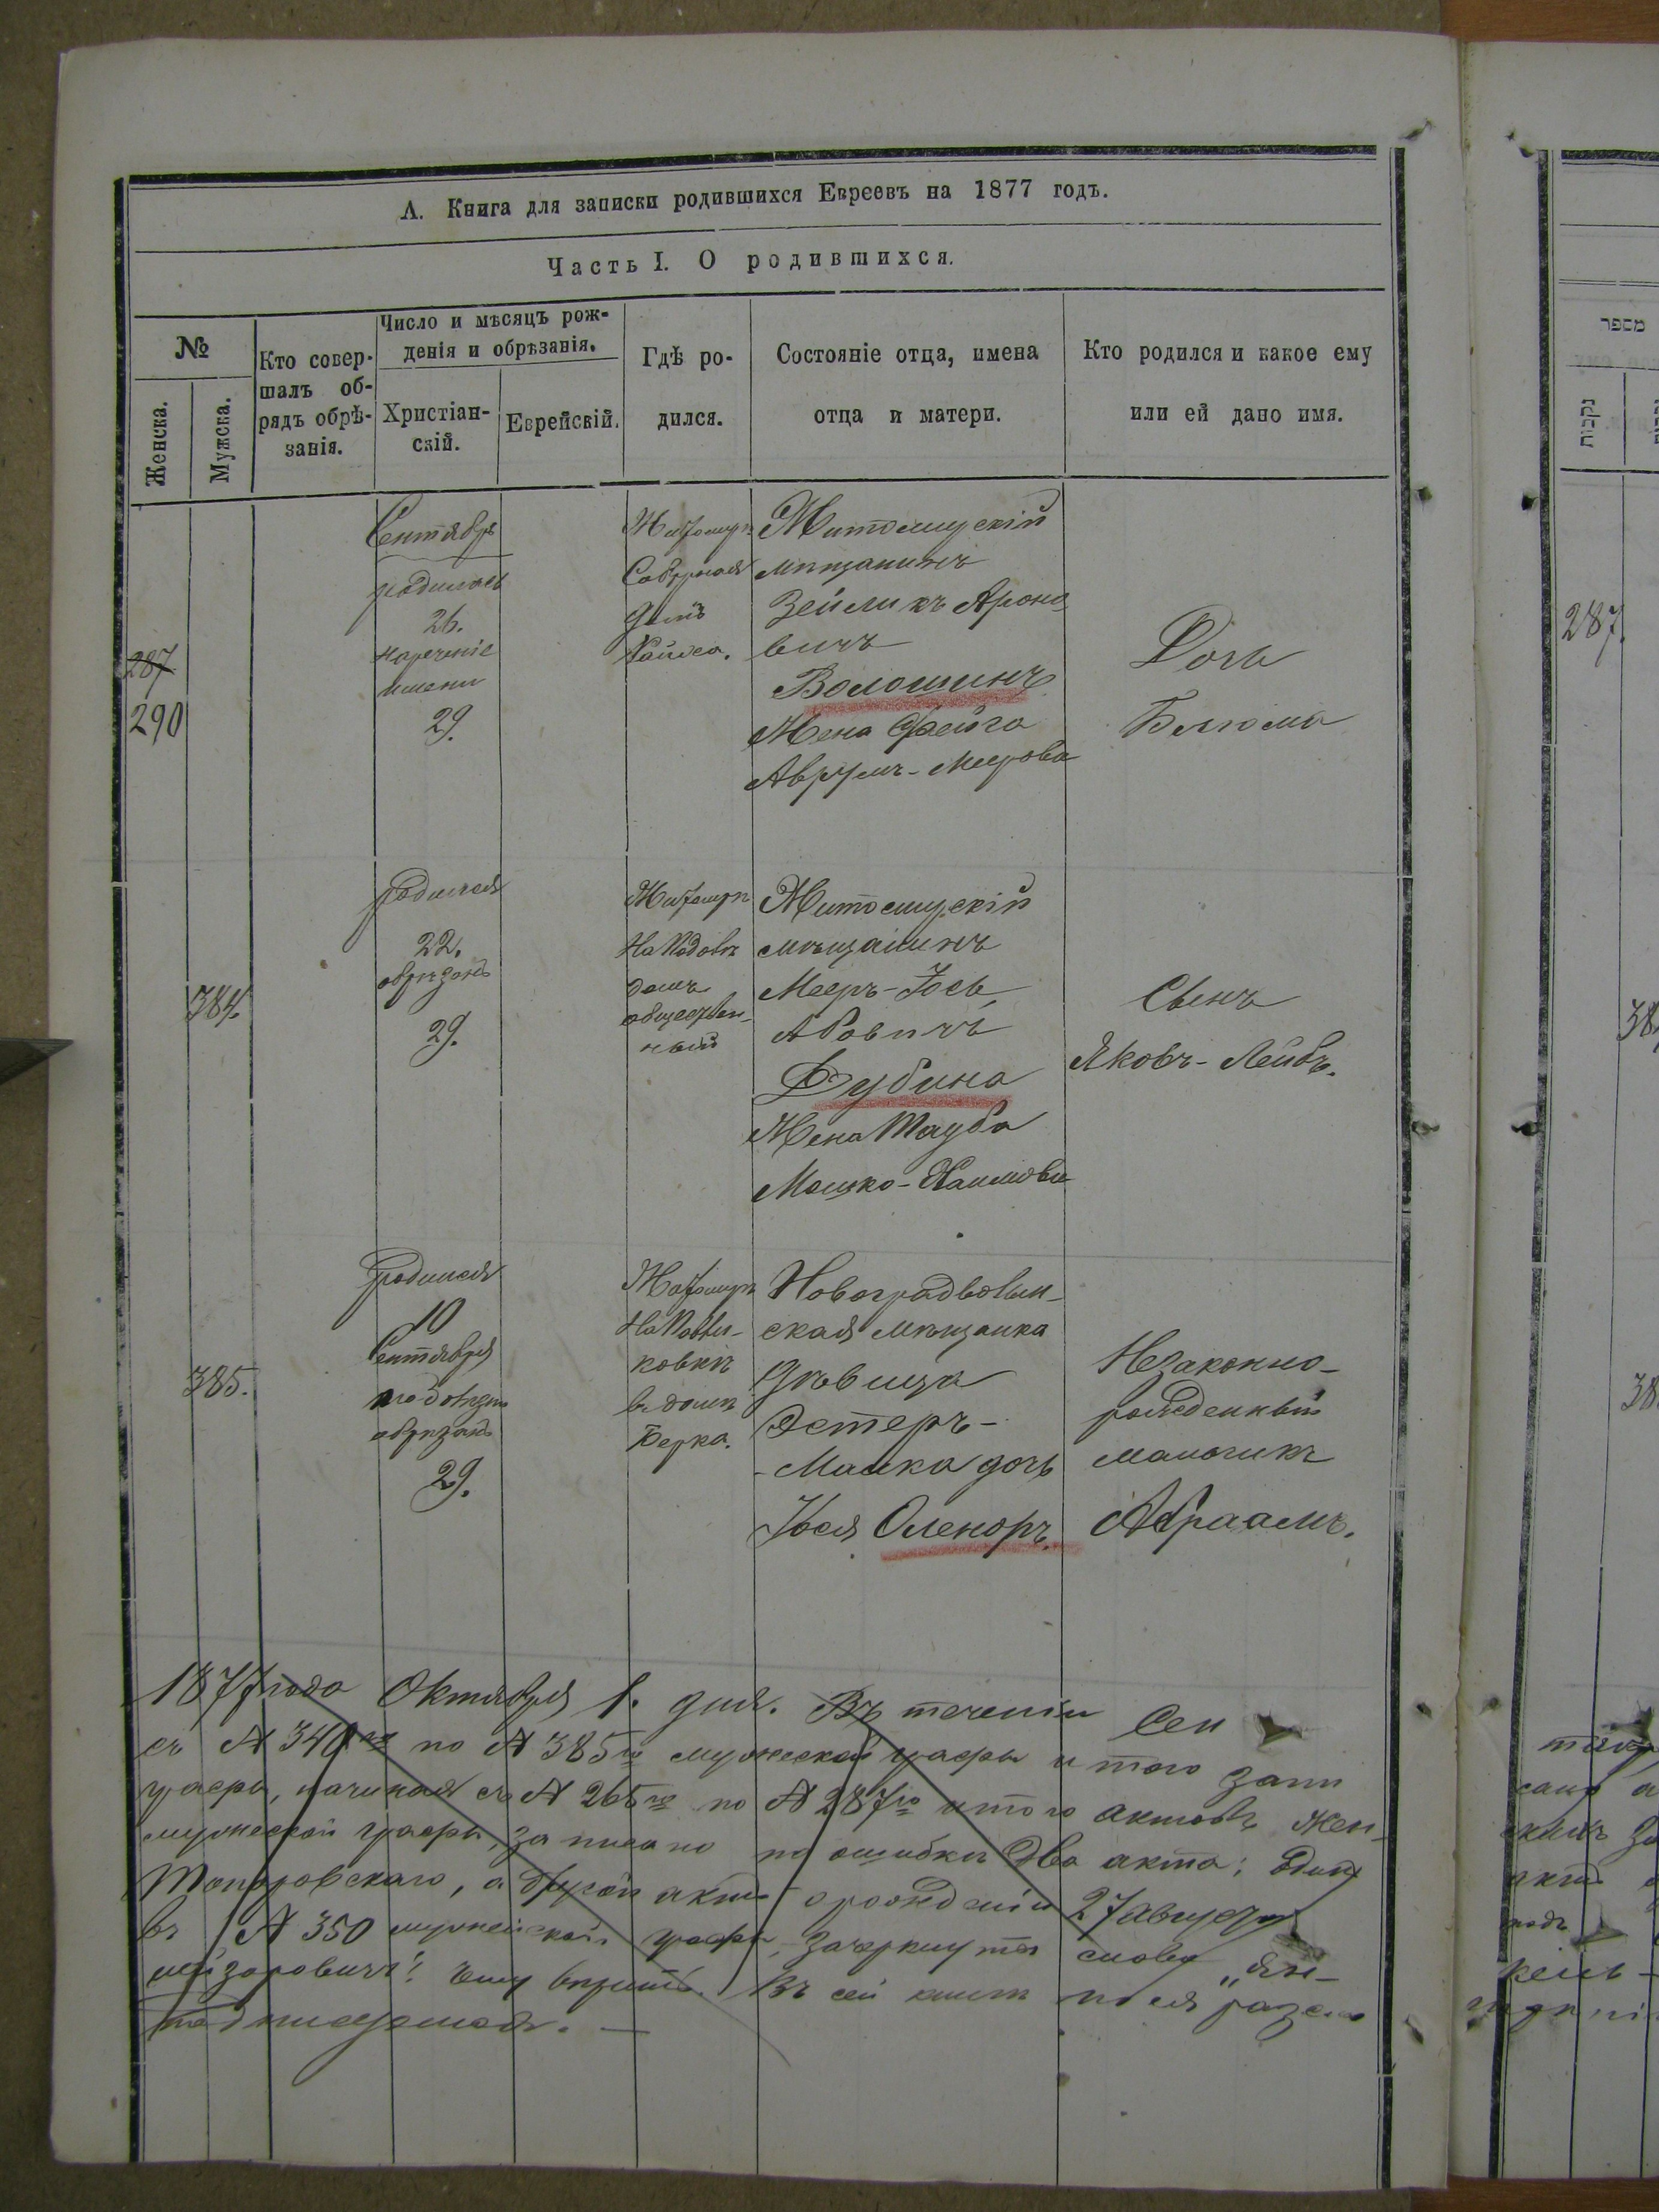 А. Книга для записки родившихся Евреевъ на 1877 годъ.
Часть I. О родившихся.
№
Женска.
Мужска.
Кто совер-
шалъ об-
рядъ обрѣ-
занія.
Число и мѣсяцъ рож-
денія и обрѣзанія.
Христіан-
скій.
Еврейскій.
Гдѣ ро-
дился.
Состояніе отца, имена
отца и матери.
Кто родился и какое ему
или ей дано имя.
287
290
Сентября
родилась
26.
нареченіе
имени
29.
Житомиръ
Соборная
домъ
Житомирскій
мѣщанинъ
Зейликъ Ароно
вичъ
Волошинъ
Жена Фейга
Аврумъ-Меерова
Дочь
Блюма
384
родился
22.
обрѣзанъ
29.
Житомиръ
домъ
обществен-
ный
Житомирскій
мѣщанинъ
Мееръ-Іось
Абовичъ
Дубина
Жена Тауба
Мошко-Хаимова
Сынъ
Яковъ-Лейбъ.
385.
родился
10
Сентября
обрѣзанъ
29.
Житомиръ
ковкѣ
въ домѣ
Берка.
Новоградволын-
ская мѣщанка
дѣвица
Эстеръ-
-Малка дочь
Іося Оленоръ.
Незаконно-
рожденный
мальчикъ
Абраамъ.
1877 года Октября 1. дня. Въ теченіи Сен
съ № 340го по № 385го мужеской графы итого запи
графы, начиная съ № 265го по № 287го итого актовъ жен-
мужеской графы, записано по ошибкѣ два акта: Одинъ
Топоровскаго, а другой актъ о рожденіи 27 августа
въ № 350 мужеской графы, зачеркнута слова „Ян-
вѣрить. Въ сей книгѣ
מספר
נקבות
287.